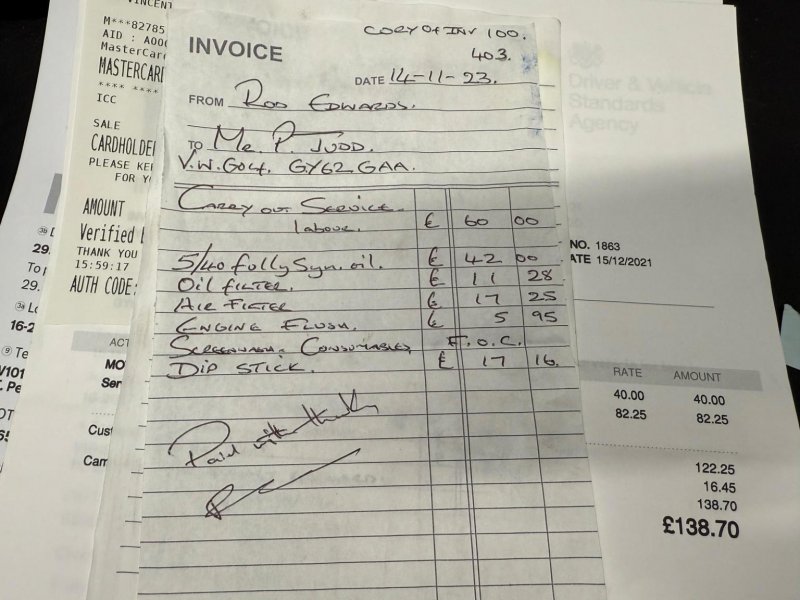 VINCENT
M***82785
AID : A00
MasterCar
MASTERCARD
**** ****
ICC
SALE
CARDHOLDE
PLEASE KEE
FOR Y
AMOUNT
Verified
THANK YOU
15:59:17
AUTH CODE:
COPY OF INV 100.
403.
INVOICE
DATE 14-11-23.
FROM ROD EDWARDS.
TO Mr. P. JUDD.
V.W. GOLF. GY62 GAA.
CARRY OUT SERVICE.
labour. £ 60 00
5/40 fully Syn. oil. £ 42 00
OIL FILTER. £ 11 28
AIR FILTER £ 17 25
ENGINE FLUSH. £ 5 95
SCREENWASH. CONSUMABLES F.O.C.
DIP STICK. £ 17 16.
Paid with thanks
Driver & Vehicle
Standards
Agency
NO. 1863
ATE 15/12/2021
RATE AMOUNT
40.00 40.00
82.25 82.25
122.25
16.45
138.70
£138.70
29.
To
29.
16-2
Te
V101
ACT
MO
Ser
Cust